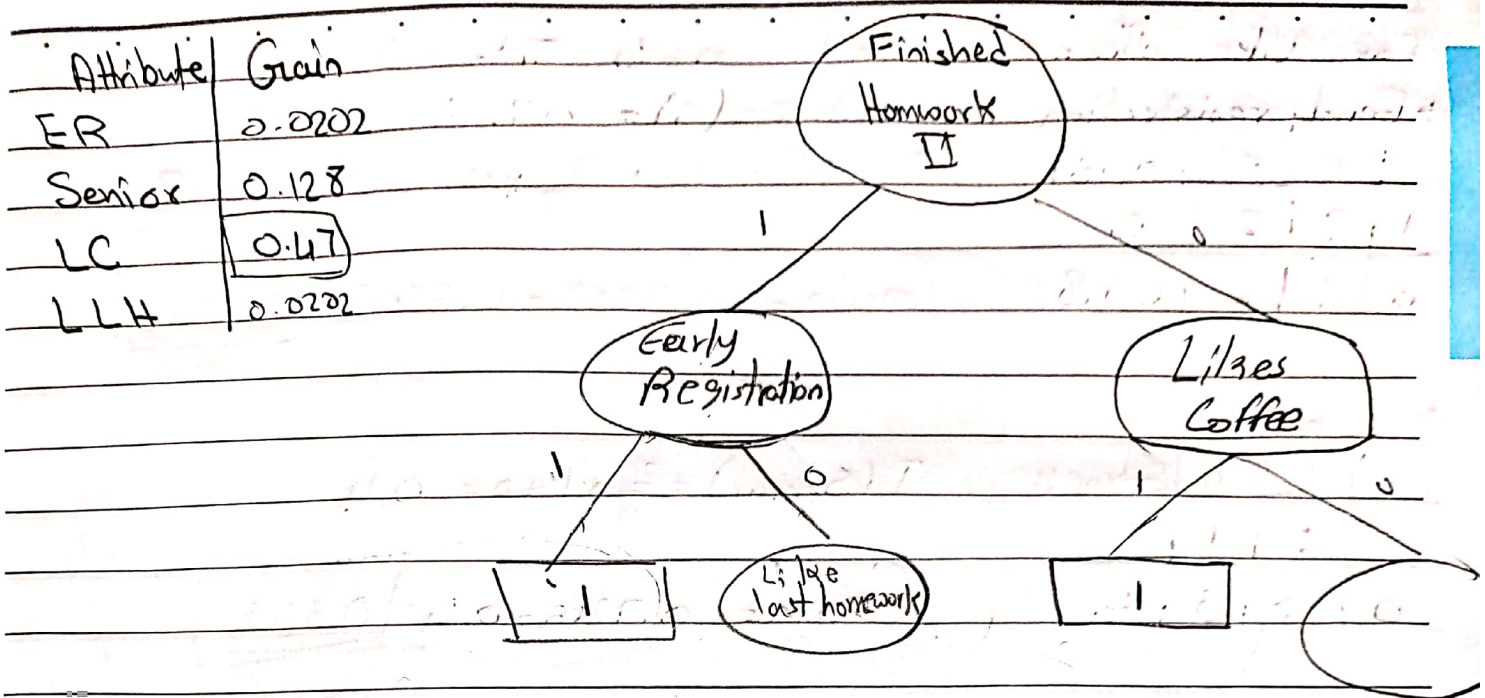 Attribute Gain
ER 0.0202
Senior 0.128
LC 0.47
LLH 0.0202
Finished
Homwork
II
1
0
Early
Registration
Likes
Coffee
1
0
1
0
1
Like
last homework
1